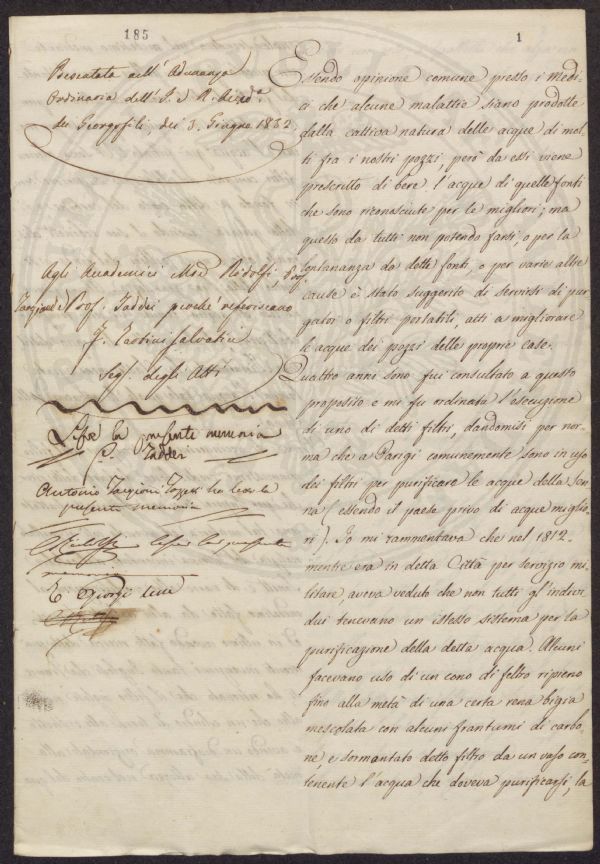 185
1
Presentata all' Adunanza
Ordinaria dell' I. e R. Accad.a
dei Georgofili, dei 3. Giugno 1832
Agli Accademici March Ridolfi, Prof.
Targioni e Prof. Taddei perché referiscano
F. Tartini Salvatici
Seg. degli Atti
Lesse la presente memoria
G. Taddei
Antonio Targioni Tozzetti ha letto la
presente memoria
C. Ridolfi lesse la presente
memoria
E Giorgi
Essendo opinione comune presso i Medi-
ci che alcune malattie siano prodotte
dalla cattiva natura delle acque di mol-
ti fra i nostri pozzi, però da essi viene
prescritto di bere l'acque di quelle fonti
che sono riconosciute per le migliori; ma
questo da tutti non potendo farsi, o per la
lontananza da dette fonti, o per varie altre
cause è stato suggerito di servirsi di pur-
gatori o filtri portatili, atti a migliorare
le acque dei pozzi delle proprie case.
Quattro anni sono fui consultato a questo
proposito e mi fu ordinata l'esecuzione
di uno di detti filtri, dandomisi per nor-
ma che a Parigi comunemente sono in uso
dei filtri per purificare le acque della Sen-
na (essendo il paese privo di acque miglio-
ri). Io mi rammentava che nel 1812.
mentre era in detta Città per servizio mi-
litare aveva veduto che non tutti gl'indivi-
dui tenevano un istesso sistema per la
purificazione della detta acqua. Alcuni
facevano uso di un cono di feltro ripieno
fino alla metà di una certa rena bigia
mescolata con alcuni frantumi di carbo-
ne, e sormontato detto filtro da un vaso con-
tenente l'acqua che doveva purificarsi, la